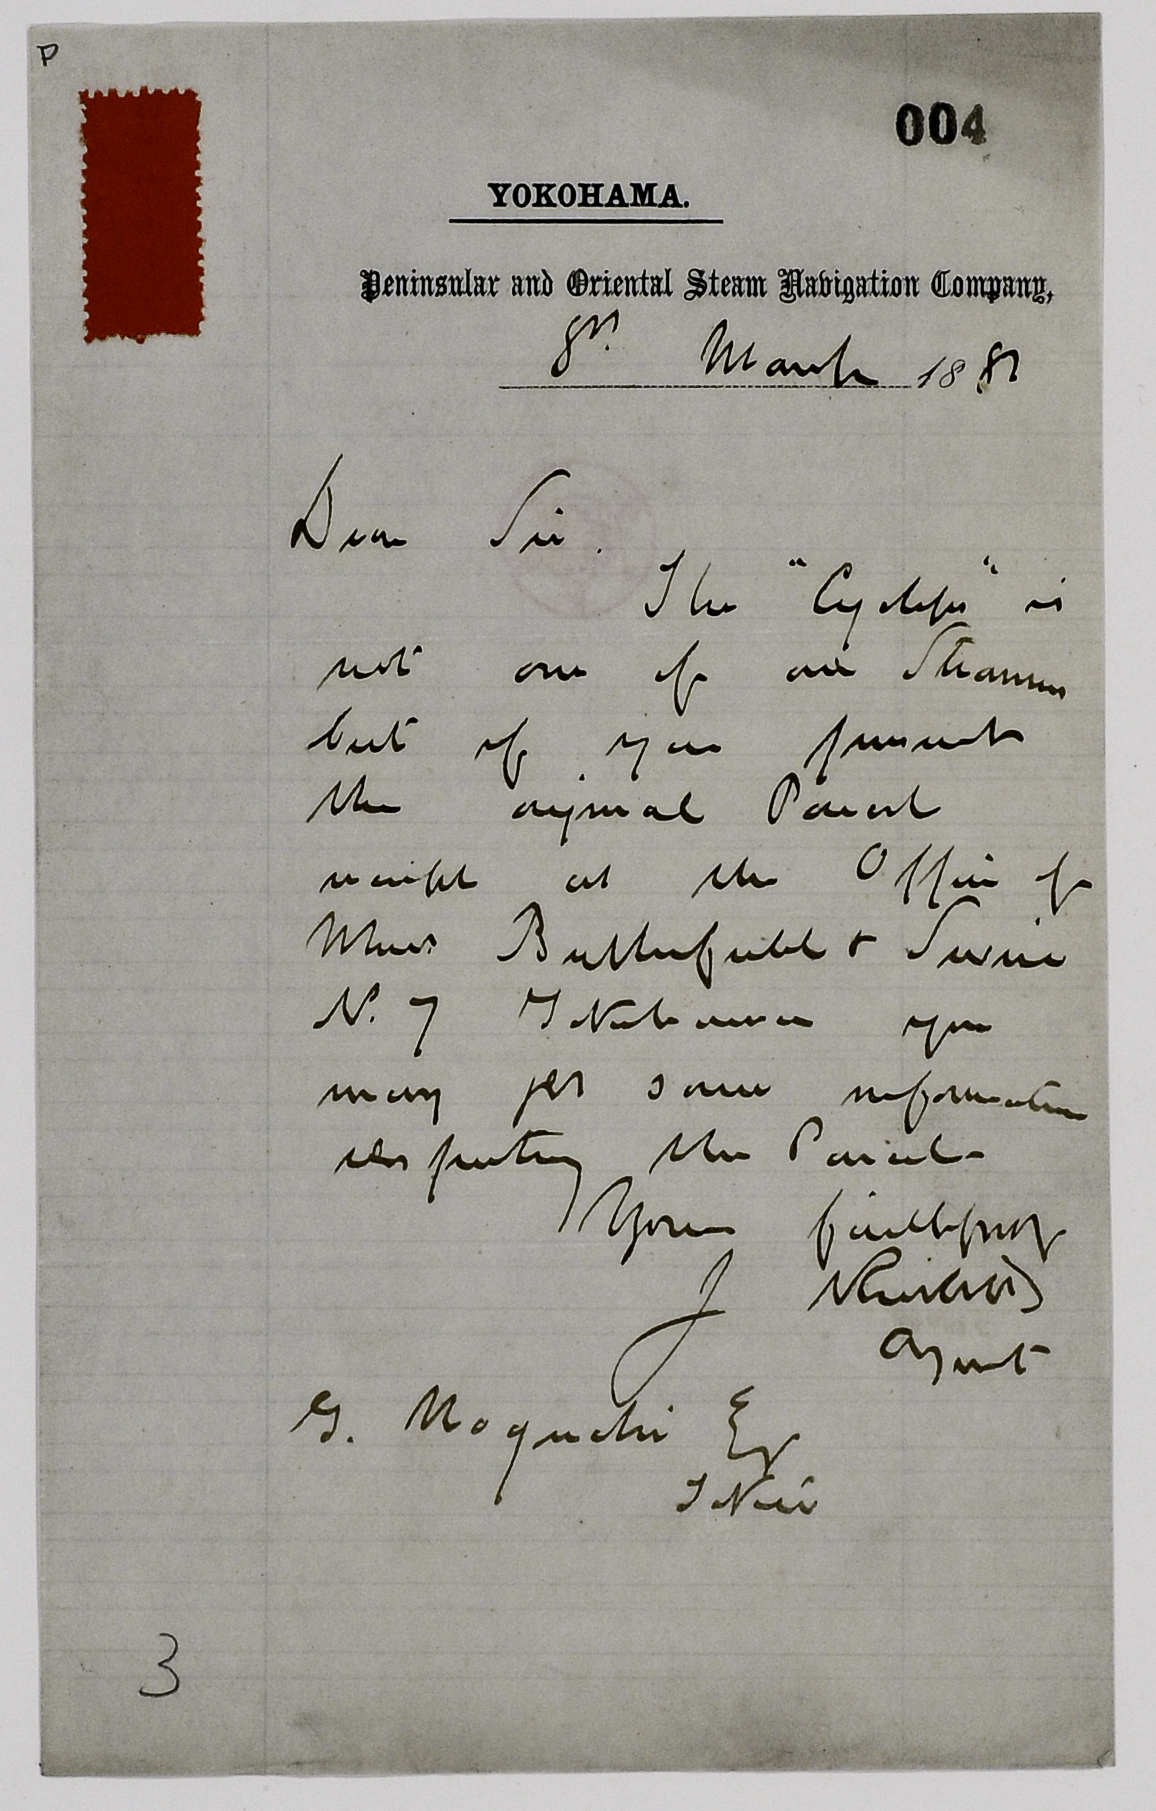 P
004
YOKOHAMA.
Peninsular and Oriental Steam Navigation Company,
8th March 188
Dear Sir.
The "Cyclops" is
not one of our Steamers
but if you present
the original Parcel
receipt at the Office of
Messrs Butterfield & Swire
No. 7 Yokohama you
may get some information
respecting the Parcel
Yours faithfully
J
Agent
G. Noguchi Esq
Tokio
3